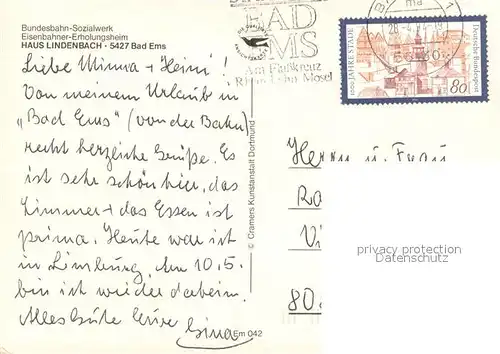 Bundesbahn-Sozialwerk
Eisenbahner-Erholungsheim
HAUS LINDENBACH · 5427 Bad Ems
BAD
EMS
Am Paßkreuz
Rhein Lahn Mosel
1000 JAHRE STADE
Deutsche Bundespost
80
Liebe Minna + Heini!
Von meinem Urlaub in
"Bad Ems" (von der Bahn)
recht herzliche Grüße. Es
ist sehr schön hier, das
Zimmer + das Essen ist
prima. Heute war ich
in Limburg. Am 10.5.
bin ich wieder daheim.
Alles Gute Eure
Gina
© Cramers Kunstanstalt Dortmund
Em 042
Herrn u. Frau
Ra
Vi
80
privacy protection
DOMAINNAME.COM